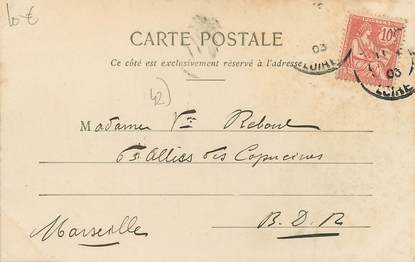 10 €
CARTE POSTALE
Ce côté est exclusivement réservé à l'adresse
42)
10
03
LOIRE
03
LOIRE
Madame Vve Reboul
63 Allées des Capucines
Marseille
B. D. R